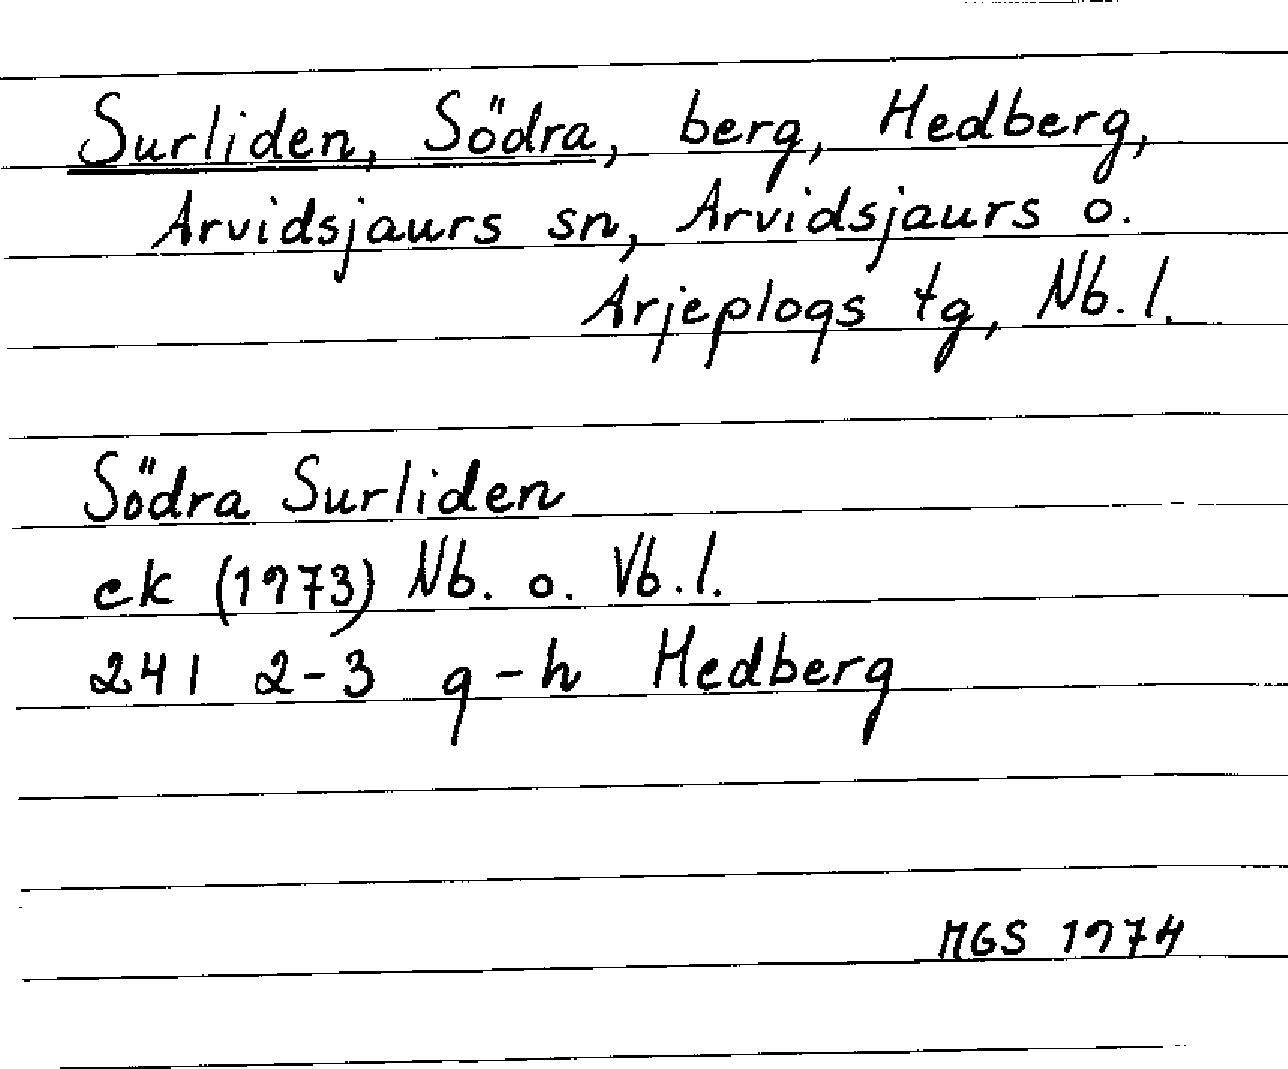 Surliden, Södra, berg, Hedberg,
Arvidsjaurs sn, Arvidsjaurs o.
Arjeplogs tg, Nb. l.
Södra Surliden
ek (1973) Nb. o. Vb. l.
241 2-3 g-h Hedberg
MGS 1974